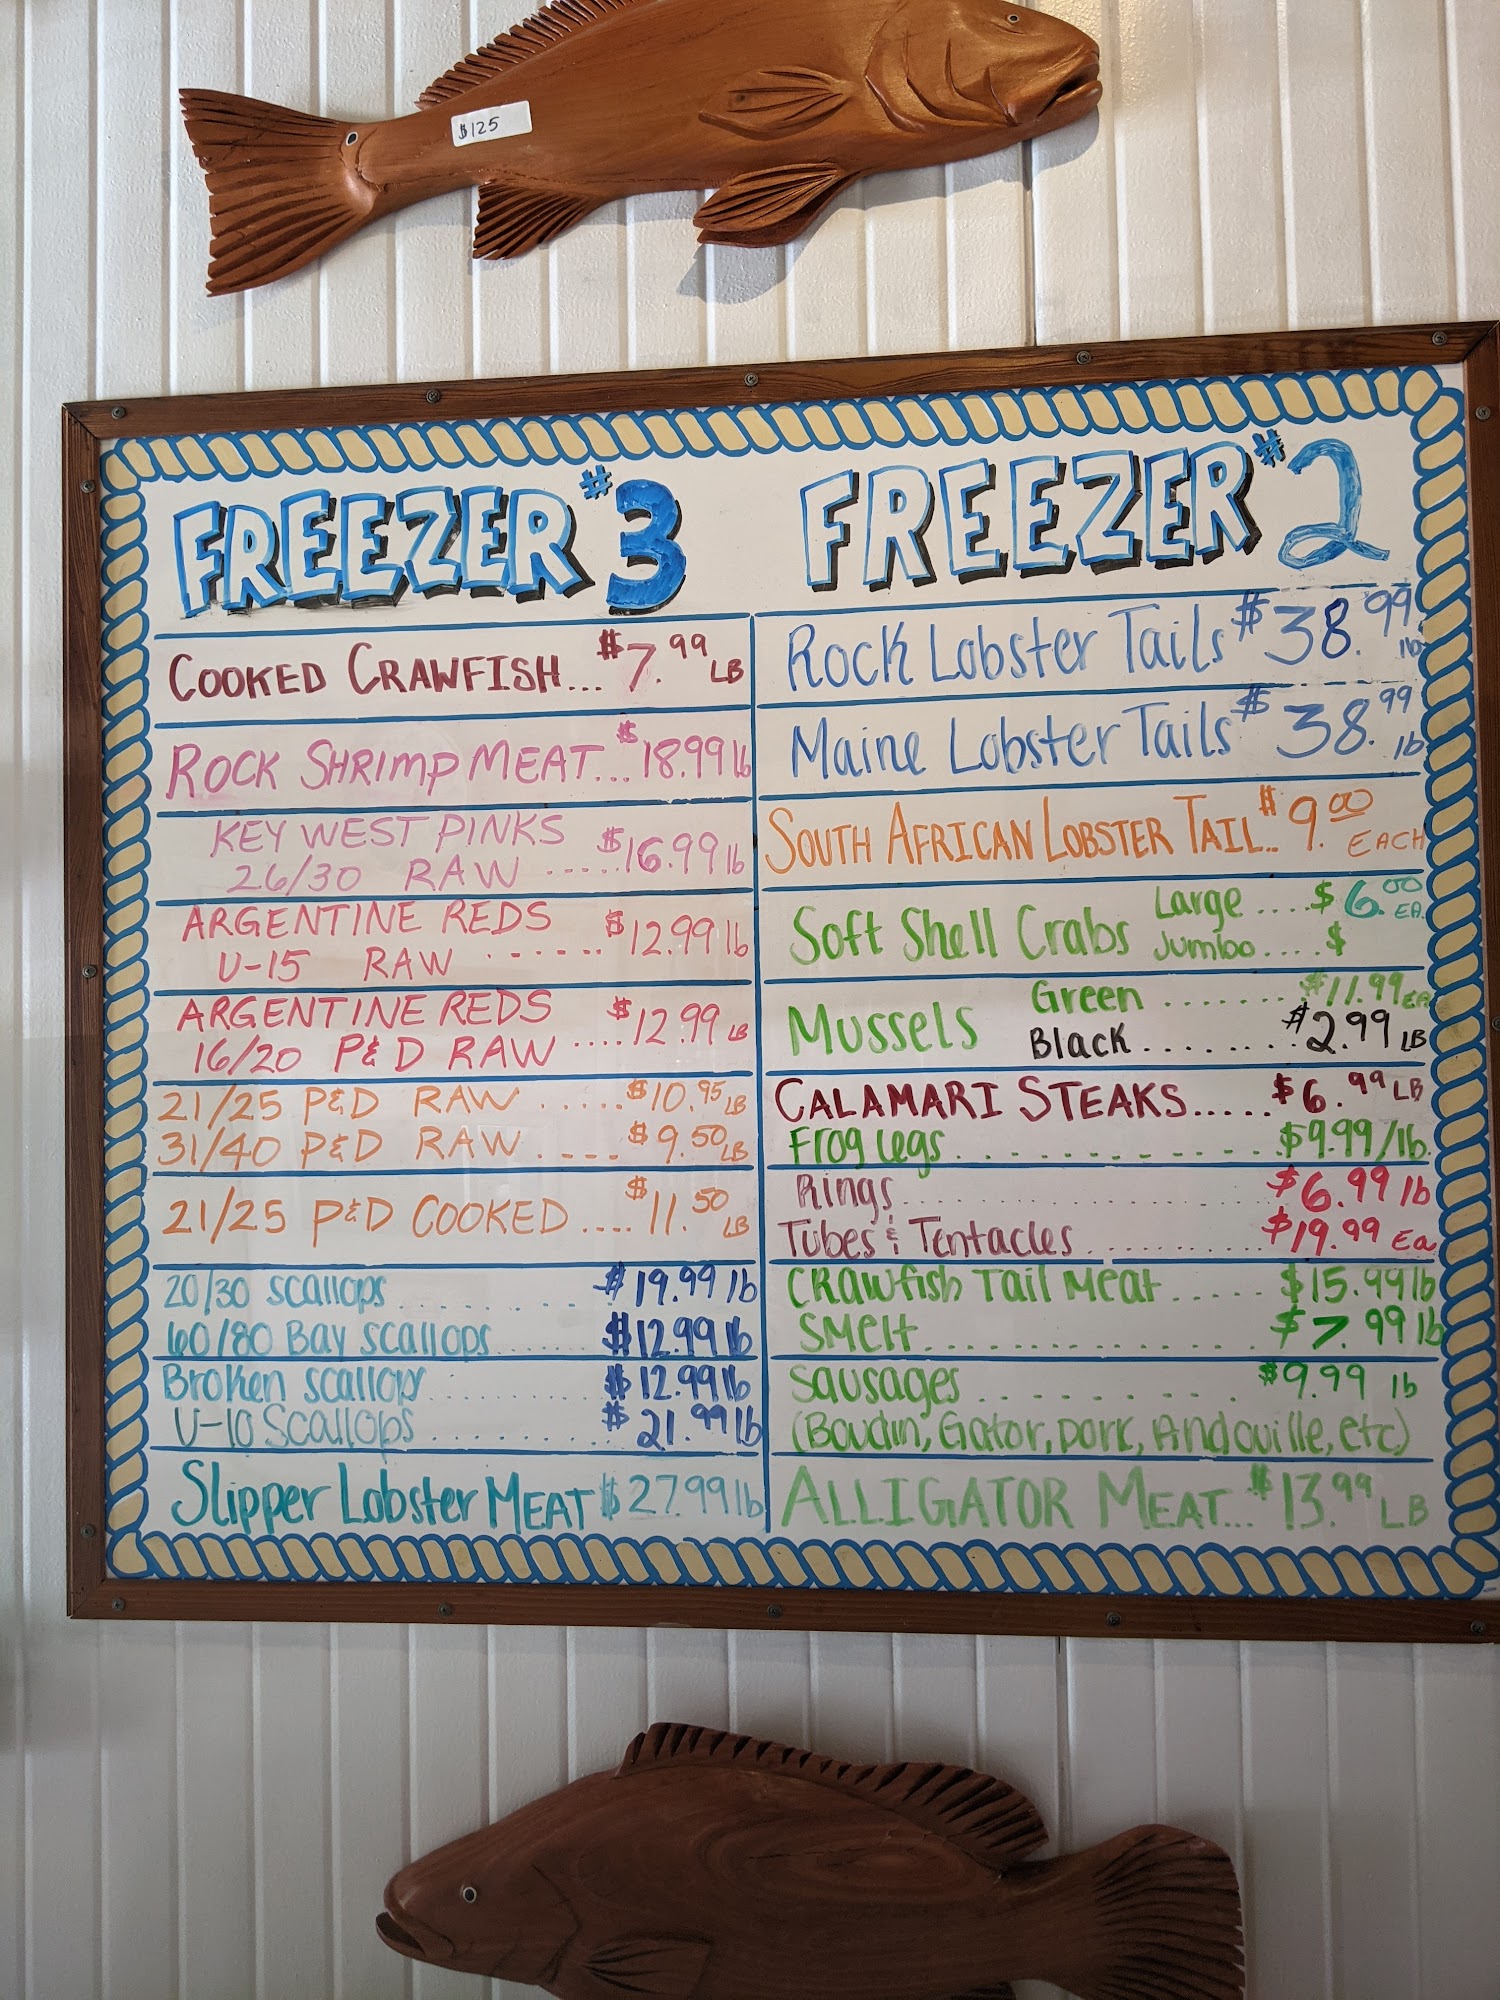 $125
FREEZER #3
COOKED CRAWFISH... $7.99 LB
ROCK SHRIMP MEAT... $18.99 lb
KEY WEST PINKS
26/30 RAW ..... $16.99 lb
ARGENTINE REDS
U-15 RAW ....... $12.99 lb
ARGENTINE REDS
16/20 P&D RAW .... $12.99 LB
21/25 P&D RAW ..... $10.95 LB
31/40 P&D RAW ..... $9.50 LB
21/25 P&D COOKED .... $11.50 LB
20/30 Scallops ......... $19.99 lb
60/80 Bay Scallops ...... $12.99 lb
Broken Scallop ........... $12.99 lb
U-10 Scallops ........... $21.99 lb
Slipper Lobster MEAT $27.99 lb
FREEZER #2
Rock Lobster Tails $38.99 lb
Maine Lobster Tails $38.99 lb
SOUTH AFRICAN LOBSTER TAIL.. $9.00 EACH
Soft Shell Crabs Large .... $6.00 EA.
Jumbo .... $
Mussels Green ........ $11.99 EA
Black ......... $2.99 LB
CALAMARI STEAKS..... $6.99 LB
Frog Legs ............. $9.99/lb.
Rings ................ $6.99 lb
Tubes & Tentacles ........... $19.99 Ea
Crawfish Tail Meat ..... $15.99 lb
Smelt ................ $7.99 lb
Sausages ........... $9.99 lb
(Boudin, Gator, Pork, Andouille, etc)
ALLIGATOR MEAT... $13.99 LB